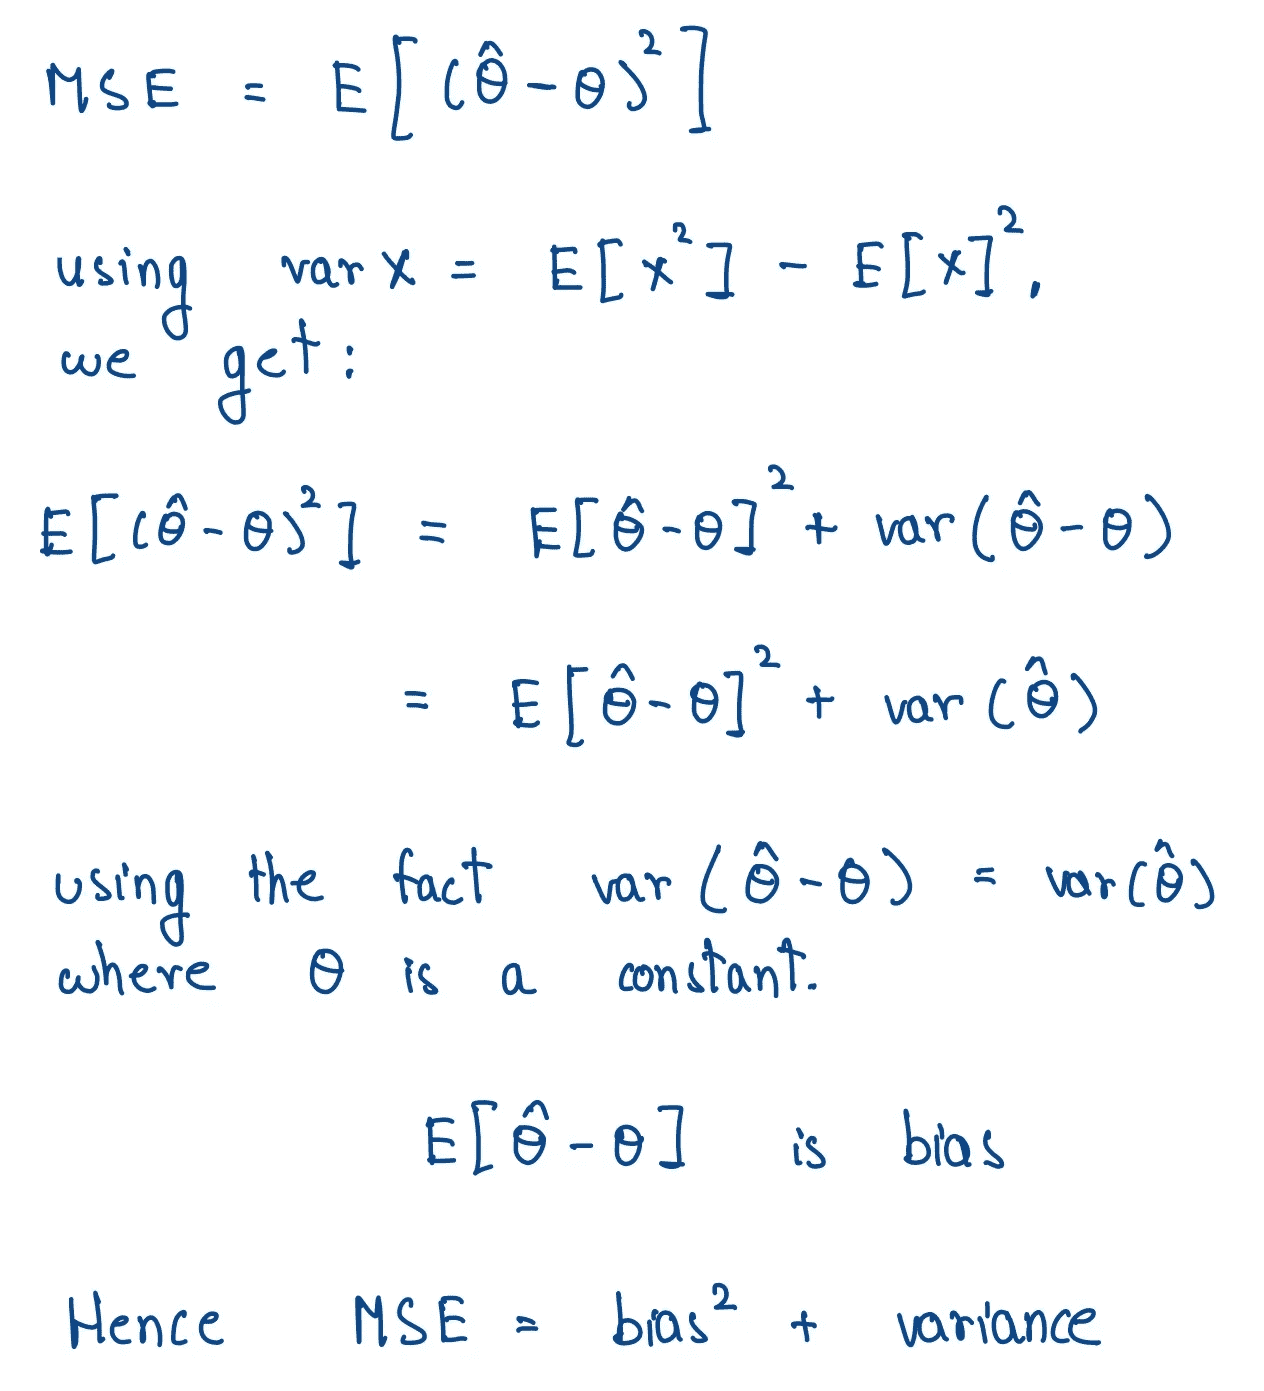 MSE = E[(θ̂ - θ)²]
using var X = E[x²] - E[x]²,
we get:
E[(θ̂ - θ)²] = E[θ̂ - θ]² + var(θ̂ - θ)
= E[θ̂ - θ]² + var(θ̂)
using the fact var(θ̂ - θ) = var(θ̂)
where θ is a constant.
E[θ̂ - θ] is bias
Hence MSE = bias² + variance